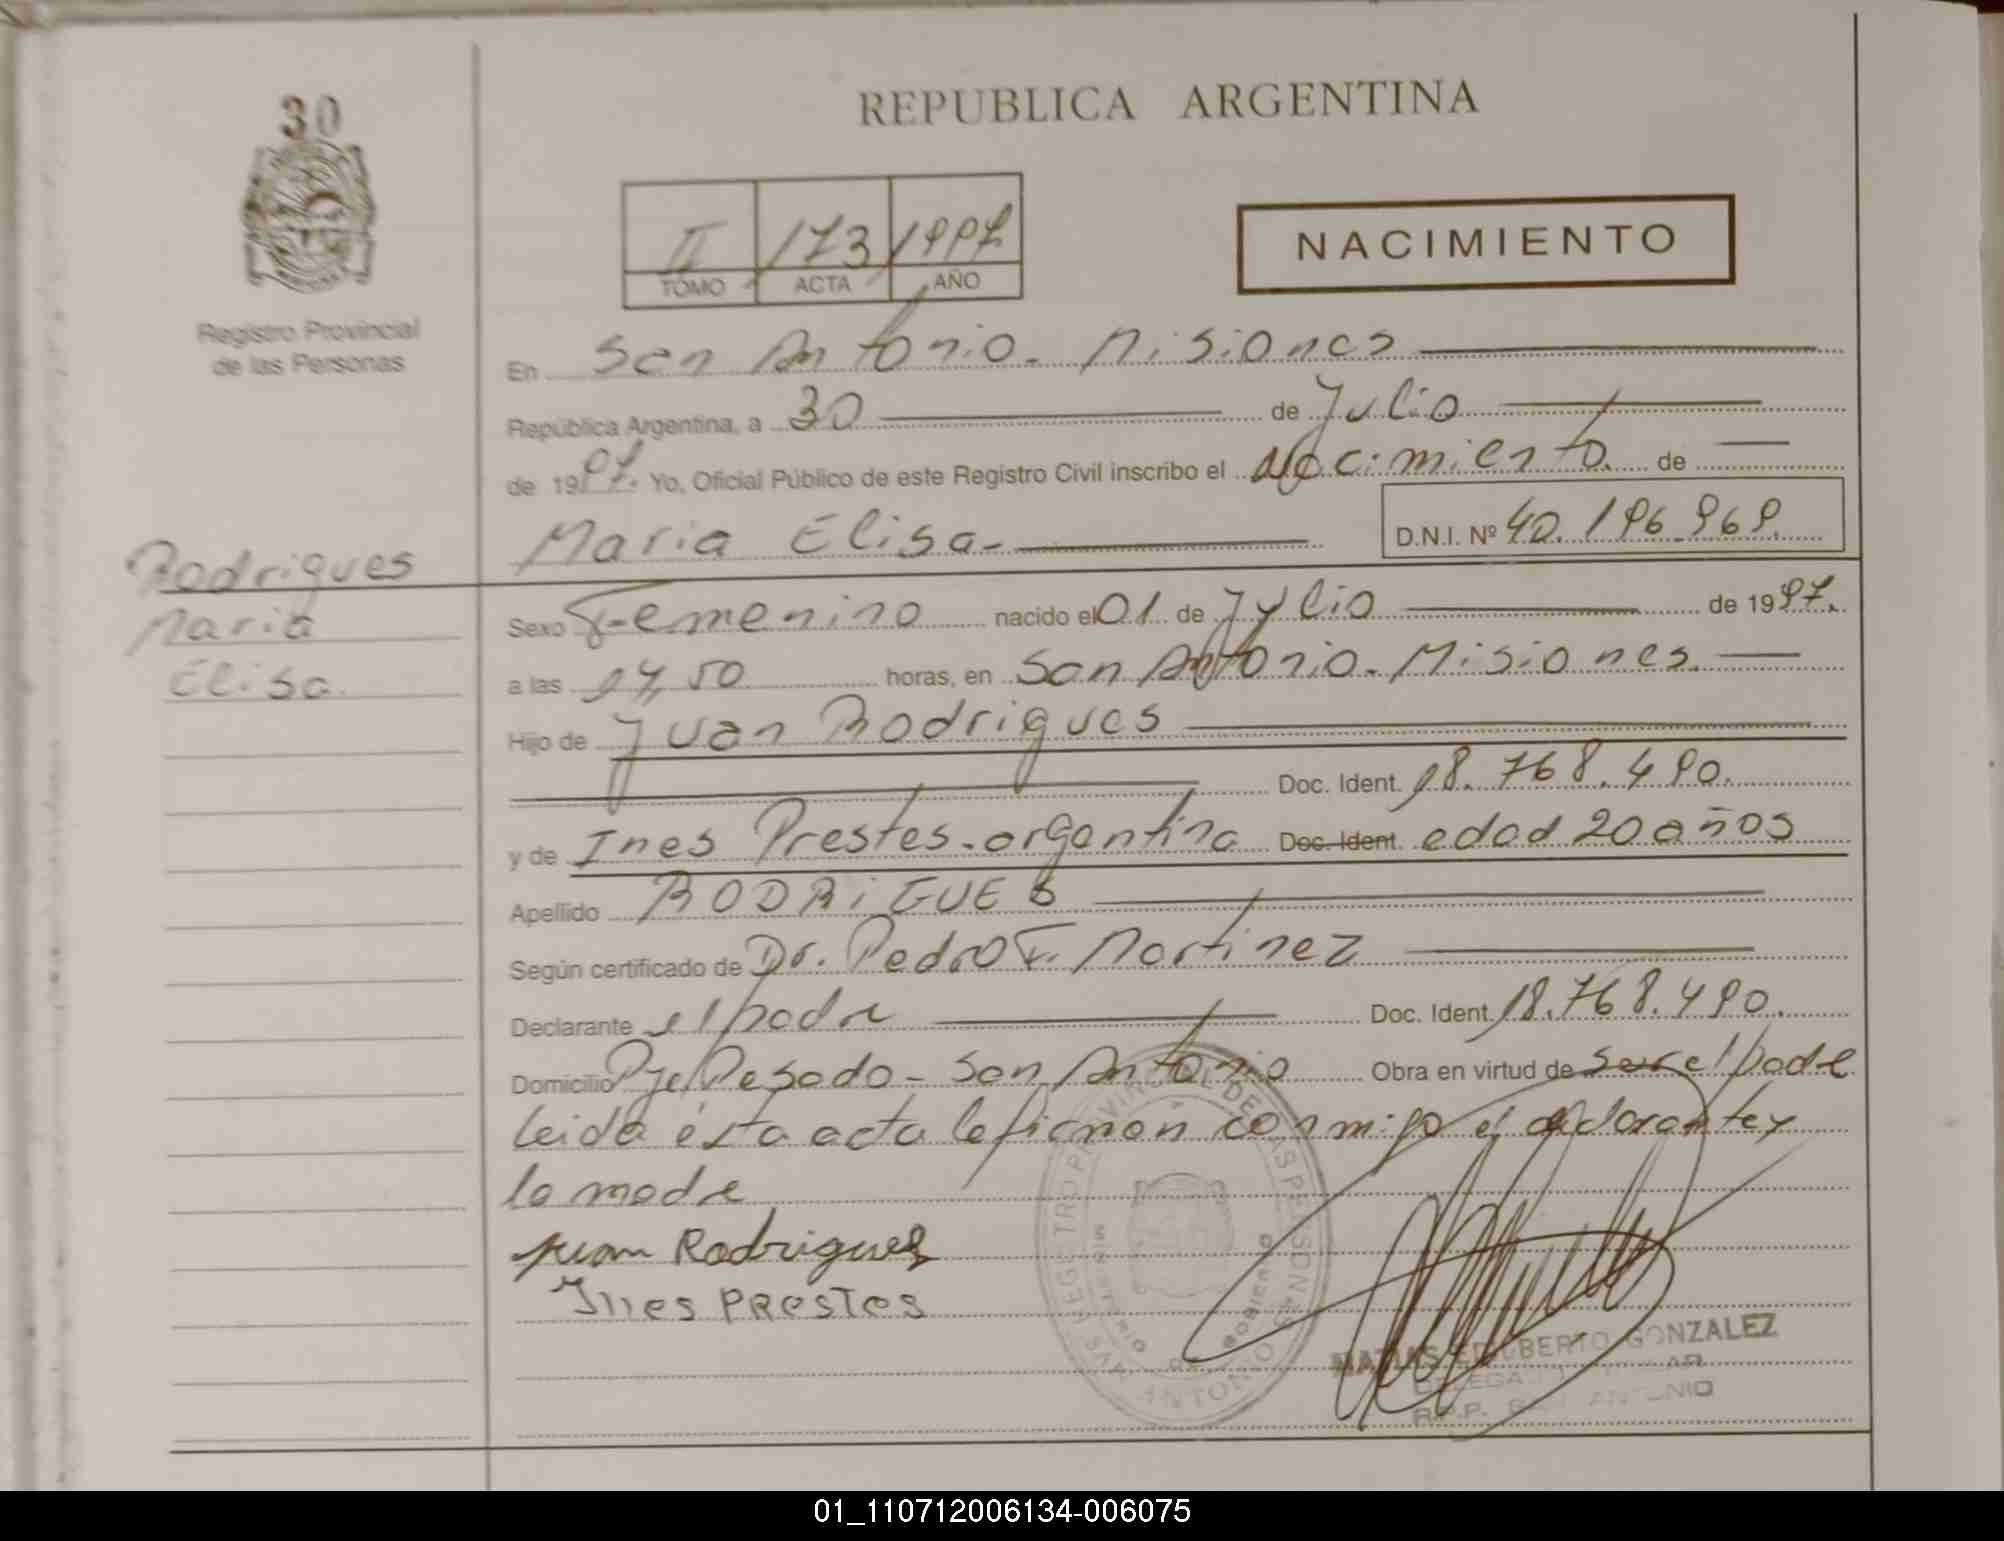 30
REPUBLICA ARGENTINA
II 173 1997
TOMO ACTA AÑO
NACIMIENTO
Registro Provincial
de las Personas
En San Antonio - Misiones
República Argentina, a 30 de Julio
de 1997. Yo, Oficial Público de este Registro Civil inscribo el Nacimiento. de
Maria Elisa - D.N.I. Nº 40.196.969.
Rodrigues
Maria
Elisa.
Sexo Femenino nacido el 01 de Julio de 1997.
a las 14,50 horas, en San Antonio - Misiones.
Hijo de Juan Rodrigues
Doc. Ident. 18.768.490.
y de Ines Prestes - argentina Doc. Ident. edad 20 años
Apellido RODRiGUES
Según certificado de Dr. Pedro F. Martinez
Declarante el padre Doc. Ident. 18.768.490.
Domicilio Pje Pesado - San Antonio Obra en virtud de ser el padre
leida ésta acta la firman conmigo el declarante y
la madre
Juan Rodrigues
Ines PRESTES
REGISTRO PROVINCIAL DE LAS PERSONAS
MINISTERIO DE GOBIERNO
SAN ANTONIO
MATIAS EDILBERTO GONZALEZ
R.P.P. SAN ANTONIO
01_110712006134-006075